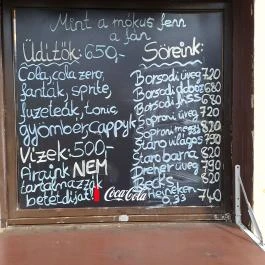 Mint a mókus fenn
a fán
Üdítők: 650,-
Cola, cola zero,
fanták, sprite,
fuzeteák, tonic,
gyömbér, cappyk
Vizek: 500,-
Áraink NEM
tartalmazzák
a betétdíjat!
Söreink:
Borsodi üveg 720
Borsodi doboz 680
Borsodi friss 680
Soproni üveg
Soproni
Staro világos 790
Staro barna 820
Dreher üveg 790
Beck's 820
Heineken 740
0,33
Coca-Cola